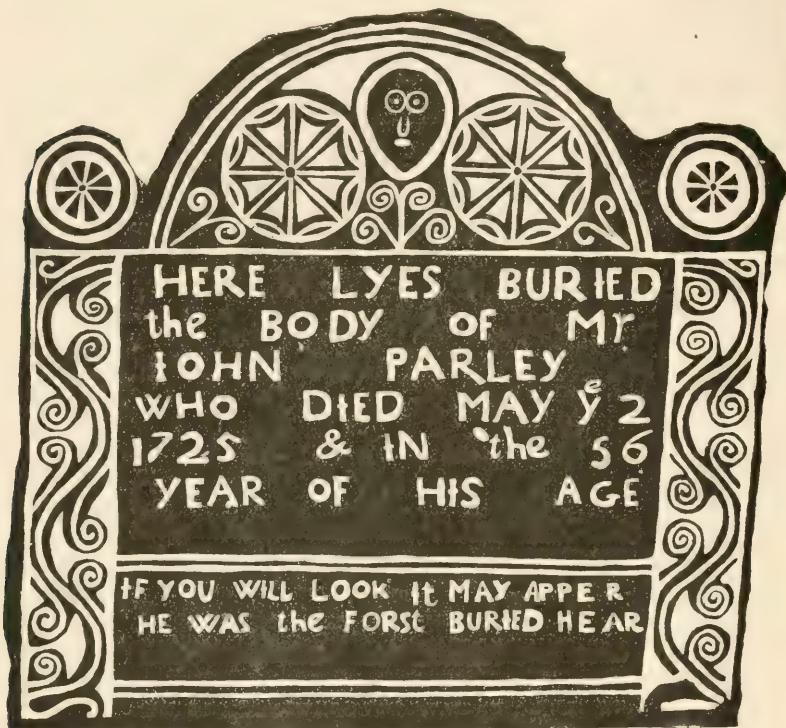 HERE LYES BURIED
the BODY OF Mr
IOHN PARLEY
WHO DIED MAY yᵉ 2
1725 & IN the 56
YEAR OF HIS AGE
IF YOU WILL LOOK It MAY APPER
HE WAS the FORSt BURIED HEAR